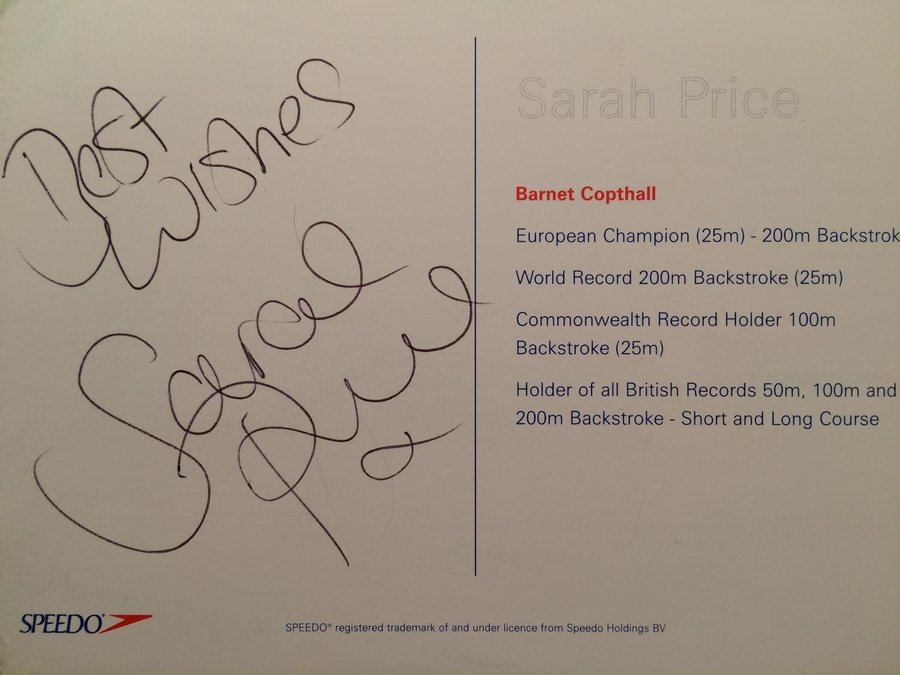 Best
Wishes
Sarah
Price
x
Sarah Price
Barnet Copthall
European Champion (25m) - 200m Backstrok
World Record 200m Backstroke (25m)
Commonwealth Record Holder 100m
Backstroke (25m)
Holder of all British Records 50m, 100m and
200m Backstroke - Short and Long Course
SPEEDO®
SPEEDO® registered trademark of and under licence from Speedo Holdings BV